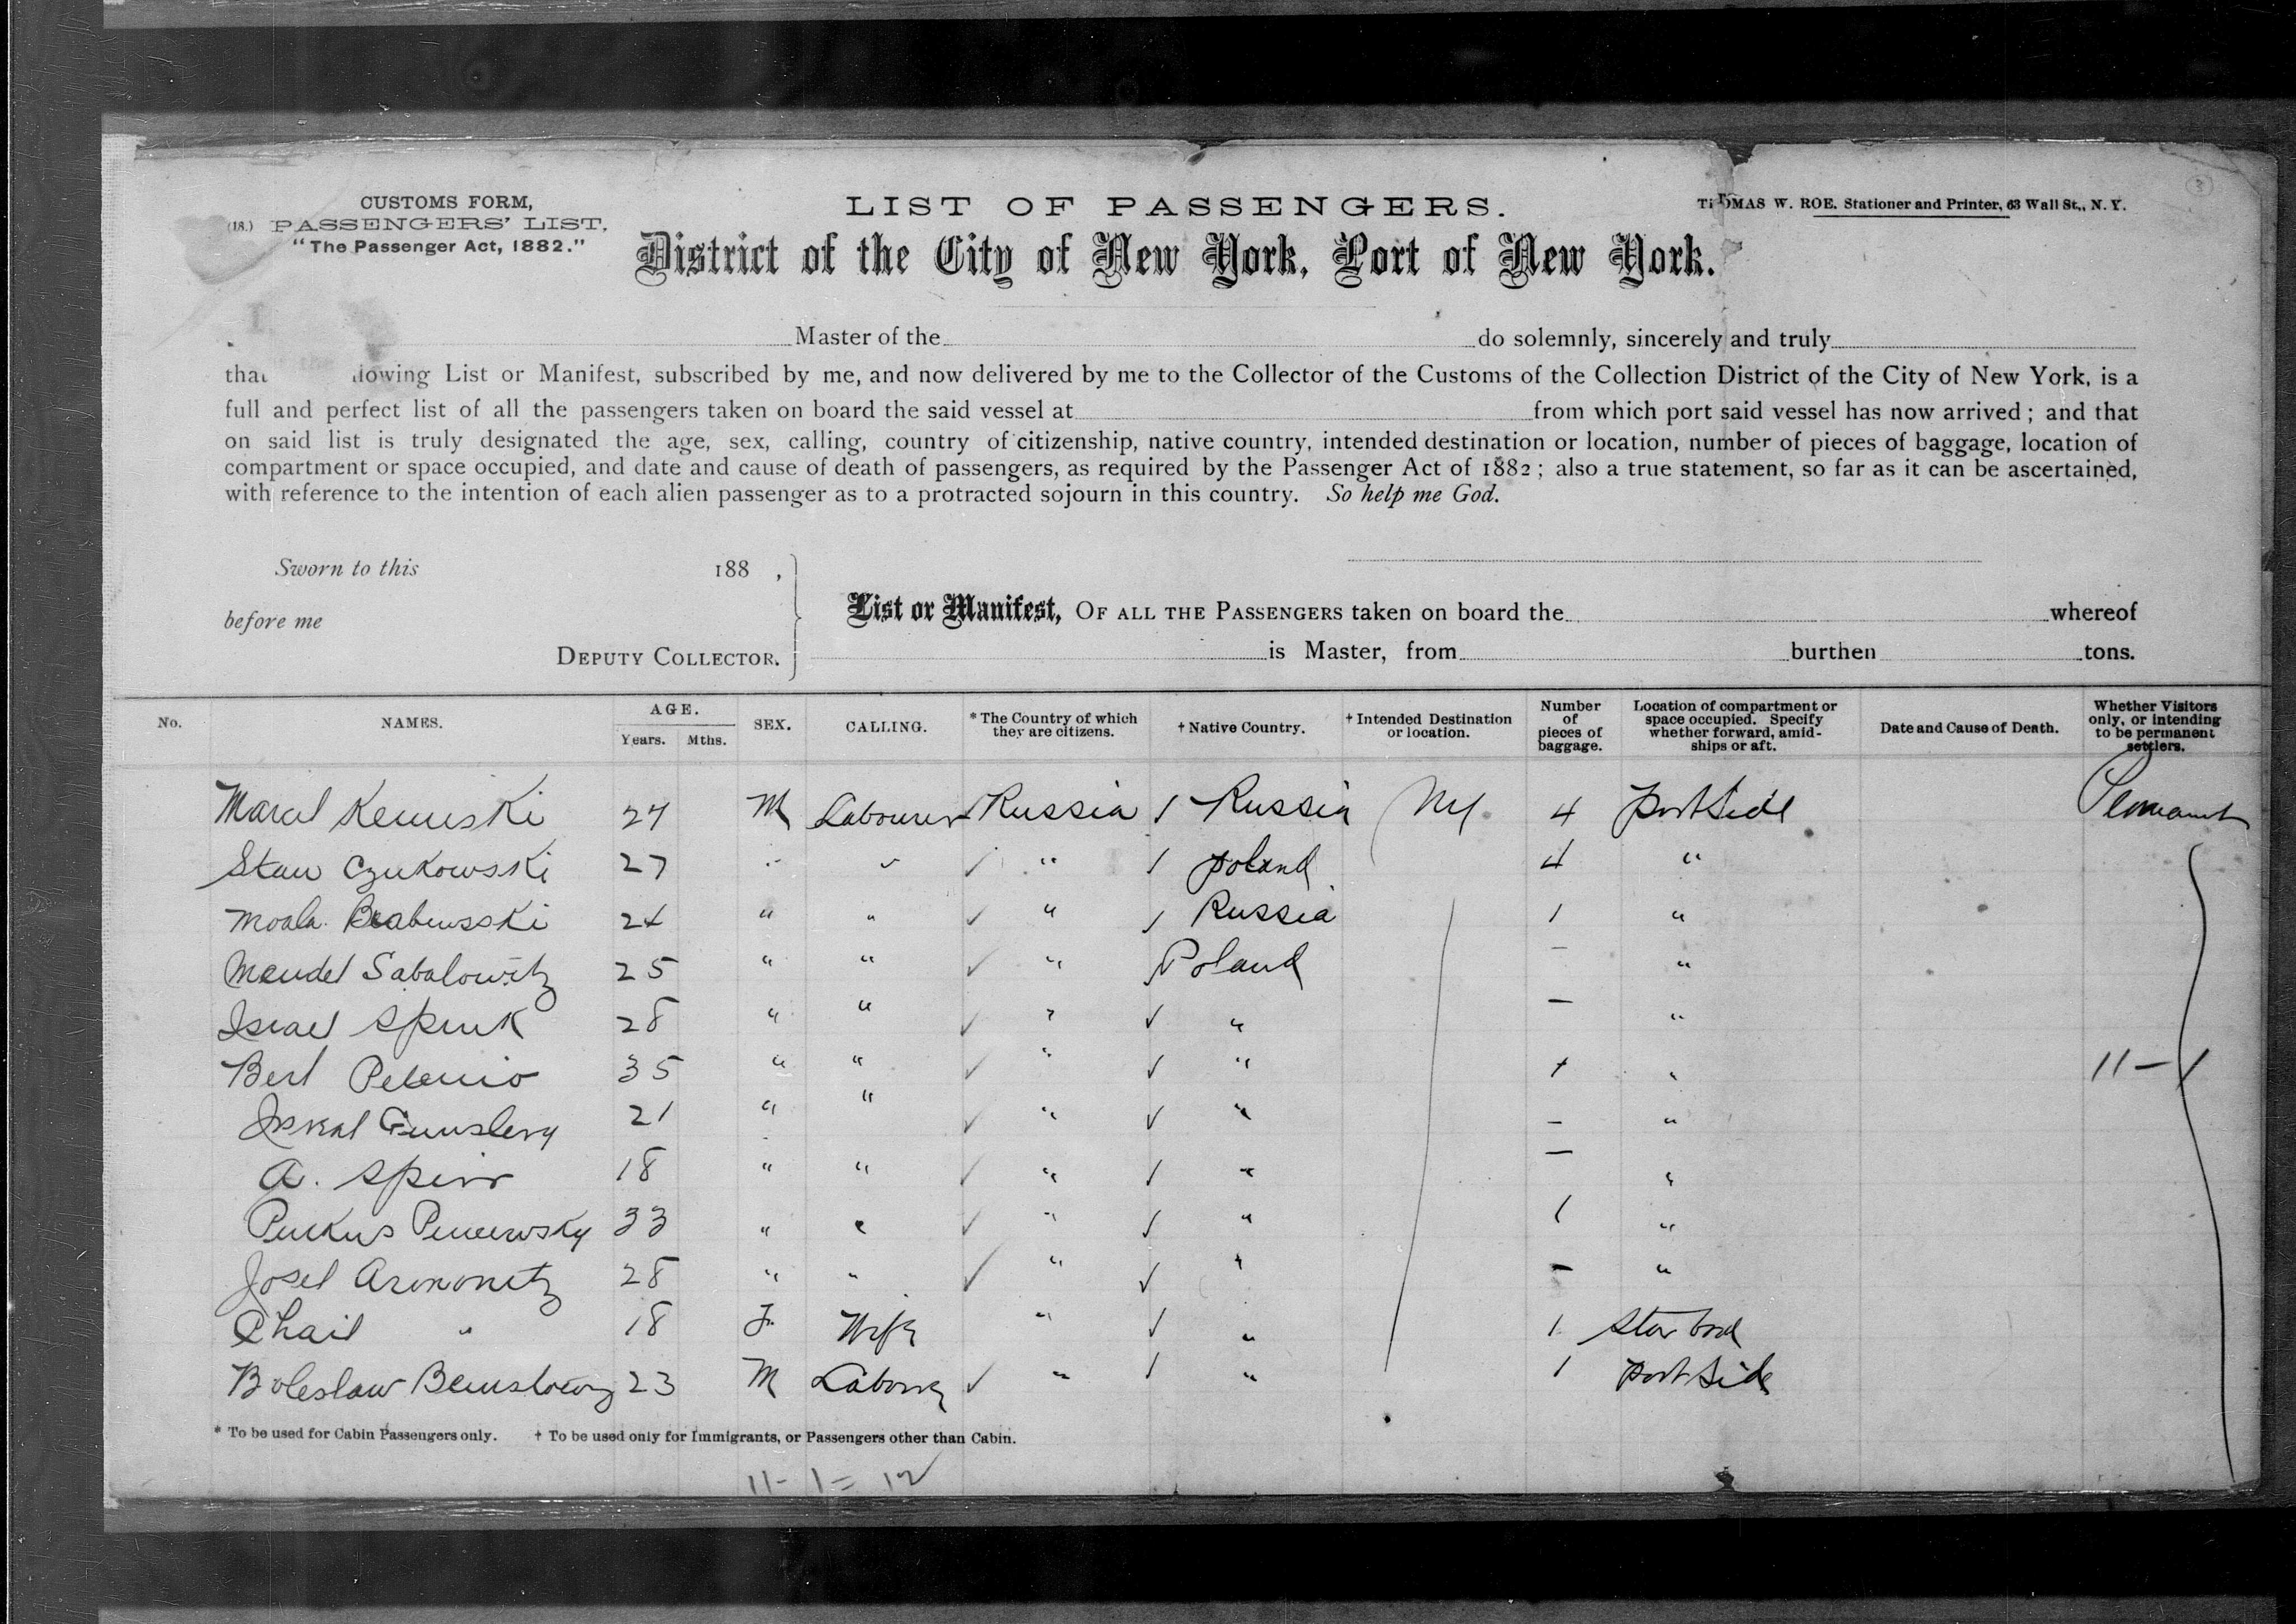 3
CUSTOMS FORM,
(18.) PASSENGERS' LIST,
"The Passenger Act, 1882."
LIST OF PASSENGERS.
THOMAS W. ROE, Stationer and Printer, 63 Wall St., N. Y.
District of the City of New York, Port of New York.
I, Master of the do solemnly, sincerely and truly
that the following List or Manifest, subscribed by me, and now delivered by me to the Collector of the Customs of the Collection District of the City of New York, is a
full and perfect list of all the passengers taken on board the said vessel at from which port said vessel has now arrived; and that
on said list is truly designated the age, sex, calling, country of citizenship, native country, intended destination or location, number of pieces of baggage, location of
compartment or space occupied, and date and cause of death of passengers, as required by the Passenger Act of 1882; also a true statement, so far as it can be ascertained,
with reference to the intention of each alien passenger as to a protracted sojourn in this country. So help me God.
Sworn to this 188 ,
before me
DEPUTY COLLECTOR.
List or Manifest, OF ALL THE PASSENGERS taken on board the whereof
is Master, from burthen tons.
No. NAMES. AGE. Years. Mths. SEX. CALLING. * The Country of which they are citizens. † Native Country. † Intended Destination or location. Number of pieces of baggage. Location of compartment or space occupied. Specify whether forward, amidships or aft. Date and Cause of Death. Whether Visitors only, or intending to be permanent settlers.
Marcel 24 M Labourer Russia / Russia NY 4 portside
Stan Czukowski 27 " " ✓ " / Poland 4 "
24 " " ✓ " / Russia 1 "
Mendel Sabalowitz 25 " " ✓ " Poland — "
Israel Spink 28 " " ✓ " ✓ " — "
Berl 35 " " ✓ " ✓ " 1 " 11 – 1
21 " " ✓ " ✓ " — "
A. Spiro 18 " " ✓ " / " — "
33 " " ✓ " / " 1 "
Josel Aronowitz 28 " " ✓ " ✓ " — "
Chail " 18 F. Wife " ✓ " 1 Starbord
Boleslaw 23 M Labourer ✓ " / " 1 portside
* To be used for Cabin Passengers only. † To be used only for Immigrants, or Passengers other than Cabin.
11 - 1 = 12 ✓